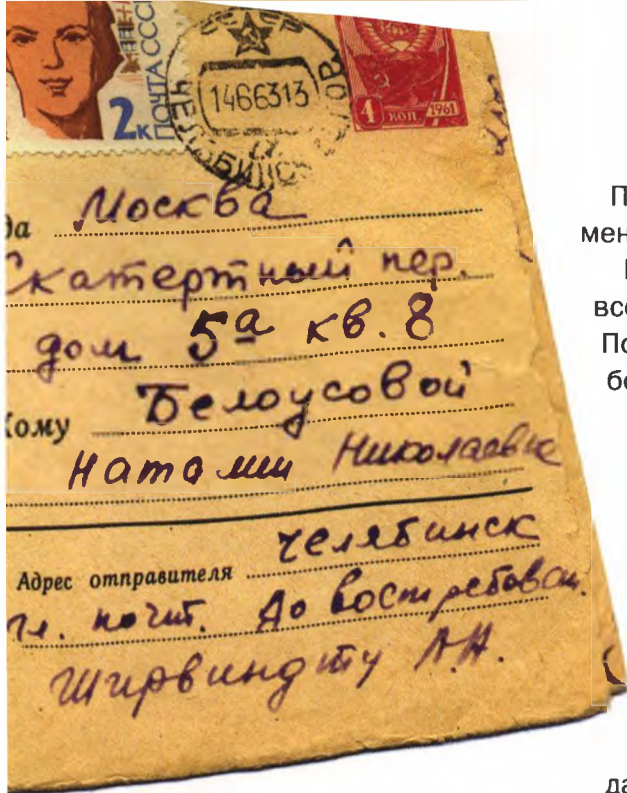 2к ПОЧТА СССР
1466313
4 КОП 1961
Москва
Скатертный пер.
дом 5а кв. 8
Кому Белоусовой
Наталии Николаевне
Адрес отправителя Челябинск
гл. почт. До востребован.
Ширвиндту А.А.
все
да